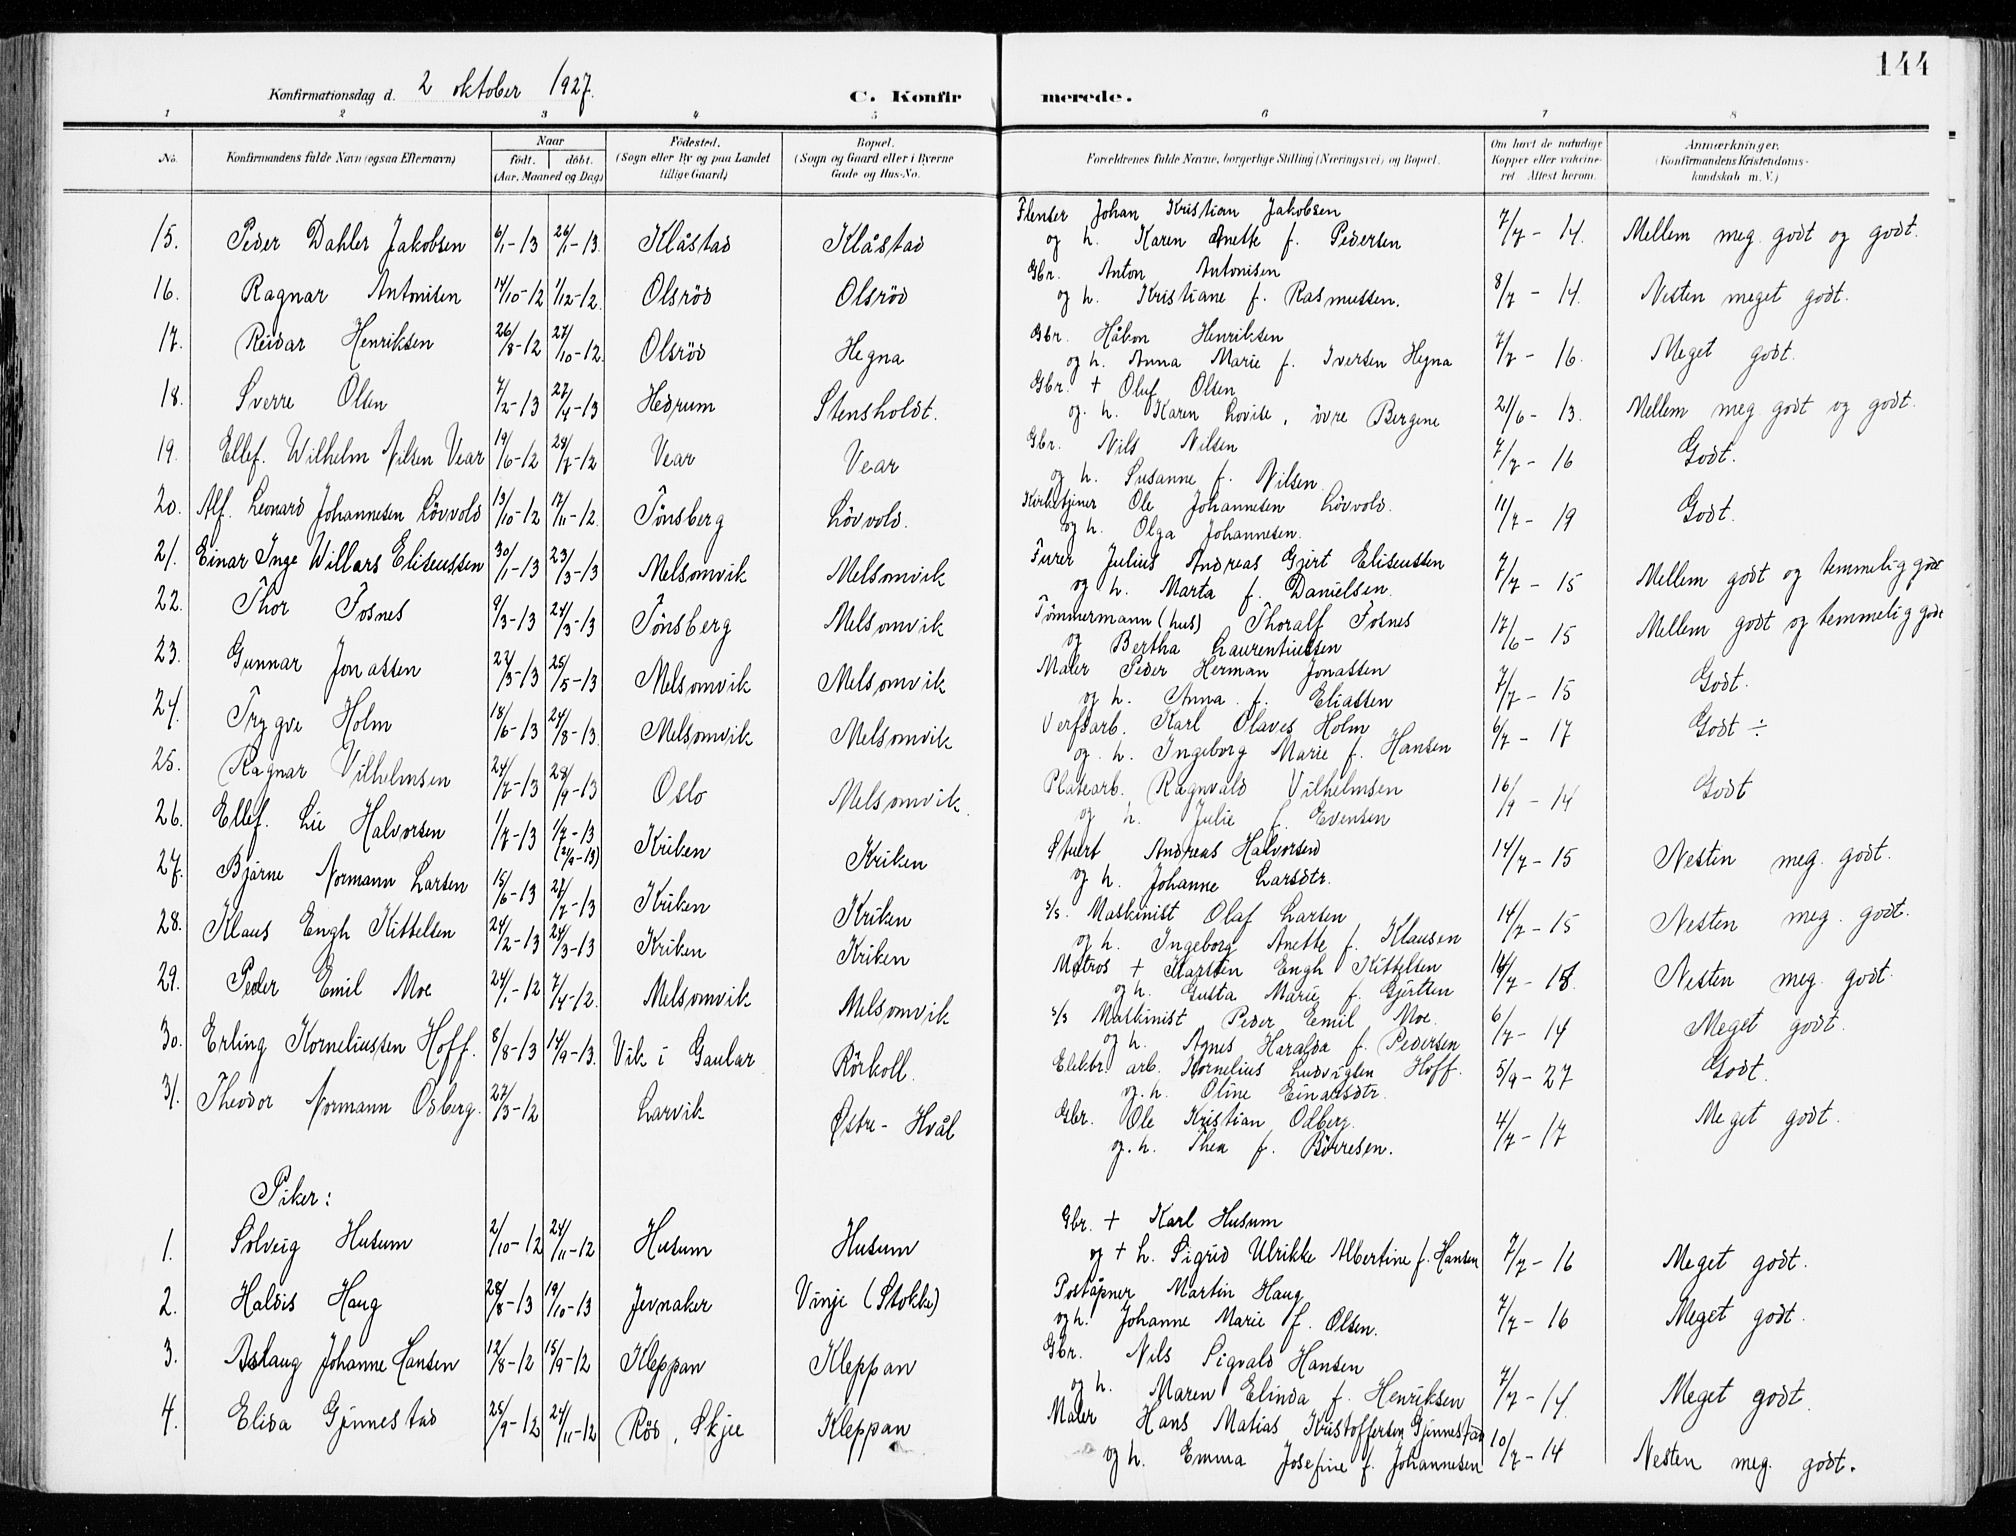 144
Konfirmationsdag d. 2 oktober 1927.
C. Konfirmerede.
1 2 3 4 5 6 7 8
No.
Konfirmandens fulde Navn (ogsaa Efternavn)
Naar
födt. döbt.
(Aar, Maaned og Dag)
Födested.
(Sogn eller By og paa Landet
tillige Gaard)
Bopæl.
(Sogn og Gaard eller i Byerne
Gade og Hus-No.
Forældrenes fulde Navne, borgerlige Stilling (Næringsvei) og Bopæl.
Om havt de naturlige
Kopper eller vakcine-
ret Attest herom.
Anmærkninger.
(Konfirmandens Kristendoms-
kundskab m. V.)
15. Peder Dahler Jakobsen 6/1-13 26/1-13 Klåstad Klåstad Flenser Johan Kristian Jakobsen
og h. Karen Anette f. Pedersen 7/7 - 14. Mellem meg. godt og godt.
16. Ragnar Antonisen 14/10-12 1/12-12. Olsröd Olsröd Gbr. Anton Antonisen
og h. Kristiane f. Rasmussen. 8/7 - 14. Nesten meget godt.
17. Reidar Henriksen 26/8-12 27/10-12. Olsröd Hegna Gbr. Håkon Henriksen
og h. Anna Marie f. Iversen Hegna 7/7 - 16. Meget godt.
18. Sverre Olsen 7/2-13 27/4-13 Hedrum Stensholdt. Gbr. + Oluf Olsen
og. h. Karen Lovise, övre Bergene 21/6 - 13. Mellem meg. godt og godt.
19. Ellef. Wilhelm Nilsen Vear 19/6-12 28/7-12 Vear Vear Gbr. Nils Nilsen
og h. Susanne f. Nilsen 7/7 - 16 Godt.
20. Alf. Leonard Johannesen Lövvold 13/10-12 17/11-12. Tönsberg Lövvold. Kirketjener Ole Johannesen Lövvold.
og h. Olga Johannesen. 11/7 - 19 Godt.
21. Einar Inge Willars Eliseussen 30/1-13 23/3-13 Melsomvik Melsomvik Furer Julius Andreas Gjert Eliseussen
og h. Marta f. Danielsen. 7/7 - 15 Mellem godt og temmelig godt
22. Thor Fosnes 9/3-13 24/3-13 Tönsberg Melsomvik Tömmermann (hus) Thoralf Fosnes
og Bertha Laurentiussen 17/6 - 15 Mellem godt og temmelig godt
23. Gunnar Jonassen 27/3-13 25/5-13 Melsomvik Melsomvik Maler Peder Herman Jonassen
og h. Anna f. Eliassen 7/7 - 15 Godt.
24. Trygve Holm 18/6-13 24/8-13. Melsomvik Melsomvik Verfsarb. Karl Olaves Holm
og. h. Ingeborg Marie f. Hansen 6/7 - 17 Godt ÷
25. Ragnar Vilhelmsen 24/7-13 28/9-13 Oslo Melsomvik. Platearb. Ragnvald Vilhelmsen
og h. Julie f. Evensen 16/9 - 14 Godt
26. Ellef. Lie Halvorsen 1/7-13 1/7-13 (21/9-13) Kriken Kriken Stuert Andreas Halvorsen
og h. Johanne Larsdtr. 14/7 - 15 Nesten meg. godt.
27. Bjarne Normann Larsen 15/6-13 27/7-13 Kriken Kriken s/s. Maskinist Olaf Larsen
og h. Ingeborg Anette f. Klausen 14/7 - 15 Nesten meg. godt.
28. Klaus Engh Kittelsen 24/2-13 24/3-13 Kriken Kriken Matros + Karsten Engh Kittelsen
og h. Gusta Marie f. Gjertsen 14/7 - 18. Nesten meg. godt.
29. Peder Emil Moe 24/1-12 7/4-12. Melsomvik Melsomvik s/s Maskinist Peder Emil Moe.
og h. Agnes Haralda f. Pedersen 6/7 - 14 Meget godt.
30. Erling Korneliussen Hoff. 8/8-13 14/9-13. Vik i Gaular Rörkoll. Elektr. arb. Kornelius Ludvigsen Hoff.
og. h. Oline Einarsdtr. 5/9 - 27 Godt.
31. Theodor Normann Osberg. 27/3-12 Larvik Østre - Hvål Gbr. Ole Kristian Odberg.
og. h. Thea f. Börresen. 4/7 - 17 Meget godt.
Piker:
1. Solveig Husum 2/10-12 24/11-12 Husum Husum Gbr. + Karl Husum
og + h. Sigrid Ulrikke Albertine f. Hansen 7/7 - 16 Meget godt.
2. Haldis Haug 28/8-13 19/10-13 Jevnaker Vinje (Stokke) Poståpner Martin Haug
og h. Johanne Marie f. Olsen. 7/7 - 16 Meget godt.
3. Aslaug Johanne Hansen 12/8-12 15/9-12 Kleppan Kleppan Gbr. Nils Sigvald Hansen
og h. Maren Elinda f. Henriksen 7/7 - 14. Meget godt.
4. Elida Gjennestad 25/9-12 24/11-12 Röd, Skjee Kleppan Maler Hans Matias Kristoffersen Gjennestad
og h. Emma Josefine f. Johannesen 10/7 - 14 Nesten meg. godt.